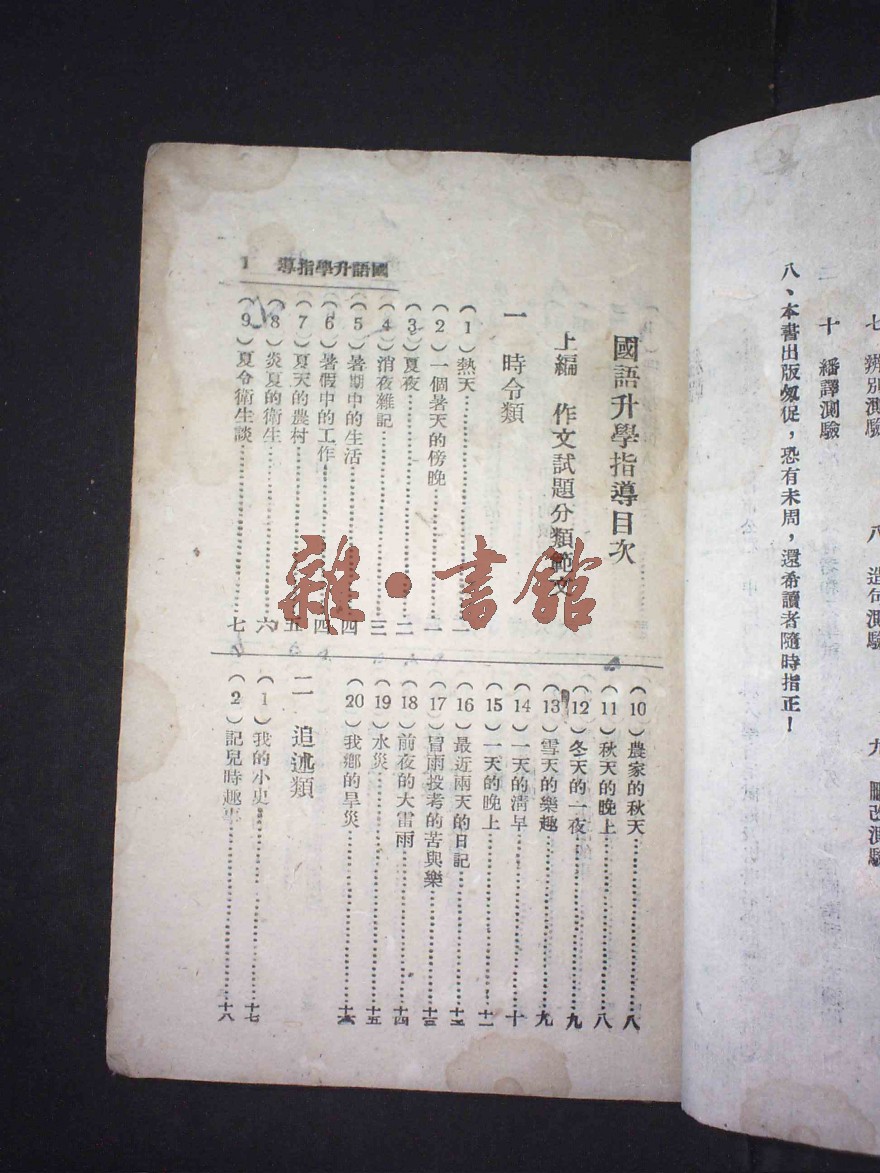 七 辨別測驗 八 造句測驗 九 刪改測驗
二 十 繙譯測驗
八、本書出版匆促，恐有未周，還希讀者隨時指正！
國語升學指導 1
國語升學指導目次
上編 作文試題分類範文
一 時令類
(1)熱天……一
(2)一個暑天的傍晚……一
(3)夏夜……二
(4)消夜雜記……三
(5)暑期中的生活……四
(6)暑假中的工作……四
(7)夏天的農村……五
(8)炎夏的衛生……六
(9)夏令衛生談……七
(10)農家的秋天……八
(11)秋天的晚上……八
(12)冬天的一夜……九
(13)雪天的樂趣……九
(14)一天的清早……十
(15)一天的晚上……十一
(16)最近兩天的日記……十二
(17)冒雨投考的苦與樂……十三
(18)前夜的大雷雨……十四
(19)水災……十五
(20)我鄉的旱災……十六
二 追述類
(1)我的小史……十七
(2)記兒時趣事……十八
雜·書館